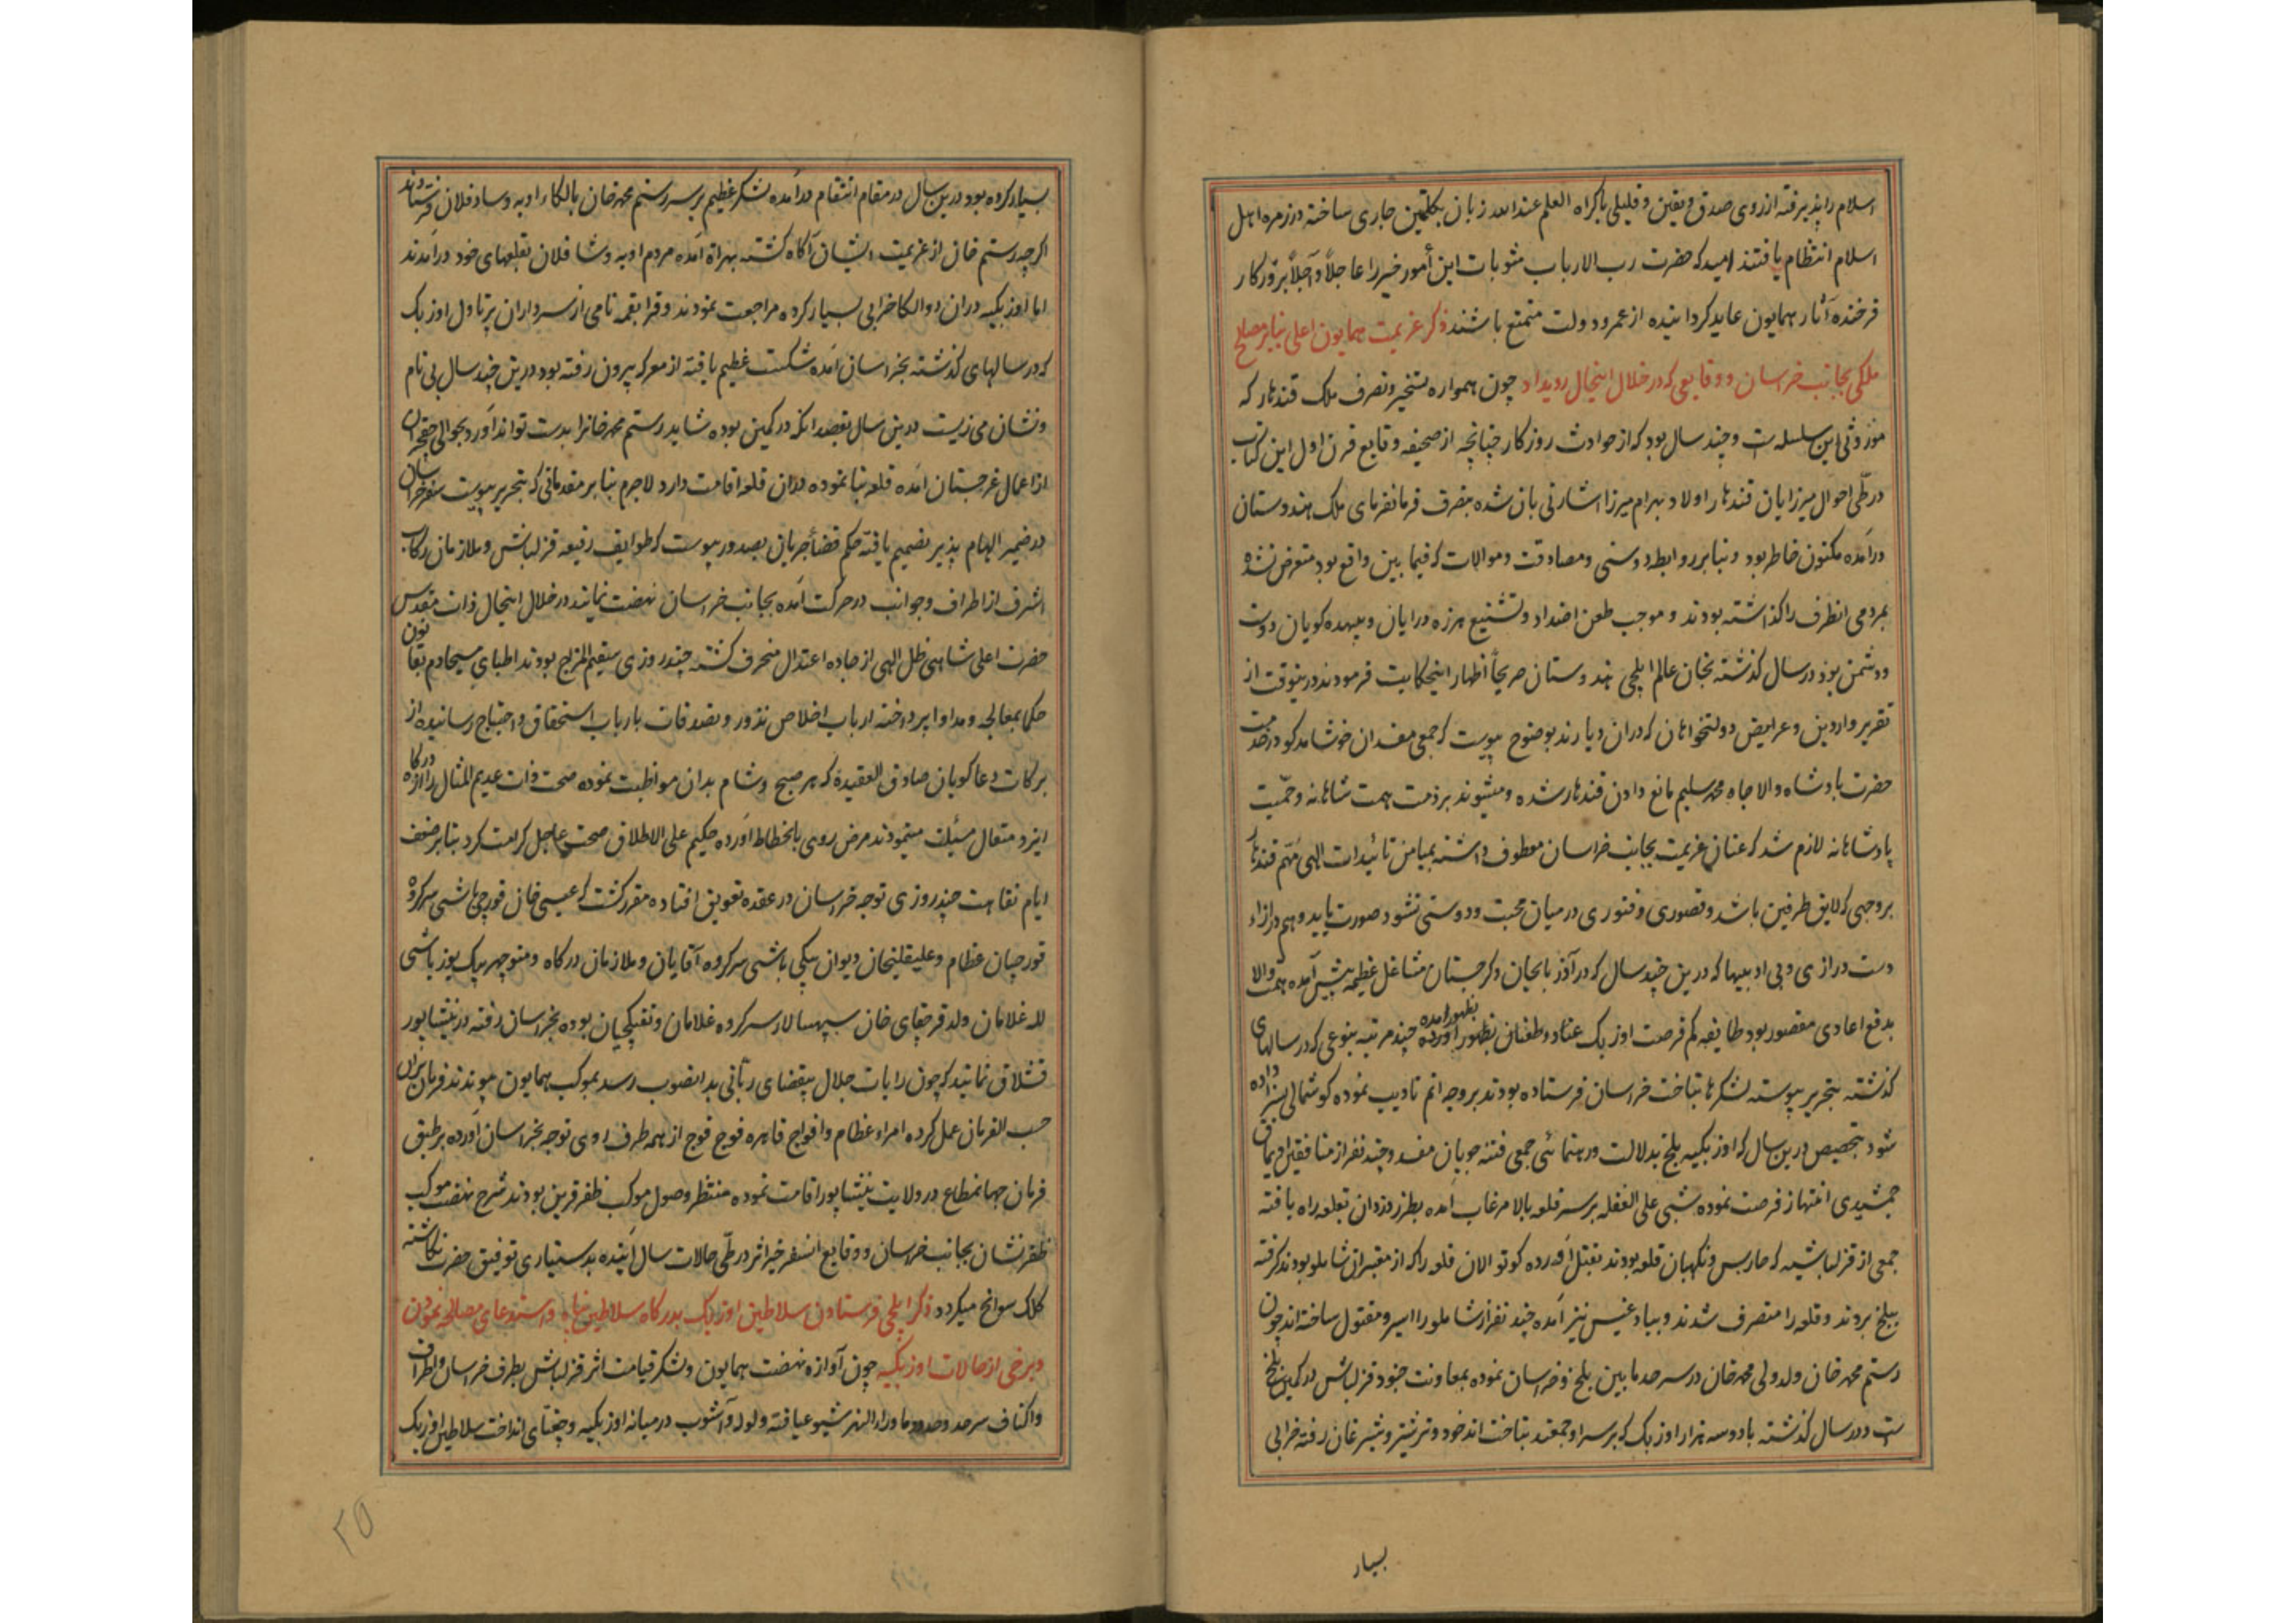 اسلام را پذیرفته از روی صدق و یقین و قلیلی باکراه العلم عندالله زبان بکلمتین جاری ساخته در زمره اهل
اسلام انتظام یافتند امید که حضرت رب الارباب مثوبات این أمور خیر را عاجلاً وآجلاً بروزکار
فرخنده آثار همایون عاید کردانیده از عمر و دولت متمتع باشند ذکر عزیمت همایون اعلی بنابر مصالح
ملکی بجانب خراسان و وقایعی که در خلال اینحال رویداد چون همواره تسخیر و تصرف ملک قندهار که
موروثی این سلسله است و چند سال بود که از حوادث روزکار چنانچه از صحیفه وقایع قرن اول این کتاب
در طّی احوال میرزایان قندهار اولاد بهرام میرزا اشارتی بان شده بتصرف فرمانفرمای ملک هندوستان
درآمده مکنون خاطر بود و بنابر روابط دوستی و مصادقت و موالات که فیما بین واقع بود متعرض نشده
بمردمی انطرف را کذاشته بودند و موجب طعن اضداد و تشنیع هرزه درایان و بیهده کویان دوست
و دشمن بود در سال کذشته بخان عالم ایلچی هندوستان صریحاً اظهار اینحکایت فرمودند درینوقت از
تقریر واردین و عرایض دولتخواهان که دران دیارند بوضوح پیوست که جمعی مفسدان خوشامدکو در خدمت
حضرت بادشاه والا جاه محمد سلیم مانع دادن قندهار شده و میشوند بر ذمت همت شاهانه و حمّیت
پادشاهانه لازم شد که عنان عزیمت بجانب خراسان معطوف داشته بمیامن تائیدات الهی مهّم قندهار
بر وجهی که لایق طرفین باشد و قصوری و فتوری در میان محبت و دوستی نشود صورت یابد و هم در ازاء
دست درازی و بی ادبیها که درین چند سال که در آذربایجان و کرجستان مشاغل عظیمه پیش آمده همت والا
بدفع اعادی مقصور بود طایفه کم فرصت اوزبک عناد و طغیان بظهور آورده بظهور امده چند مرتبه بنوعی که در سالهای
کذشته بتحریر پیوسته لشکرها بتاخت خراسان فرستاده بودند بر وجه اتم تادیب نموده کوشمالی بسزا داده
شود بتخصیص درین سال که اوزبکیه بلخ بدلالت و رهنمائی جمعی فتنه جویان مفسد و چند نفر از منافقین اویماق
جمشیدی انتهاز فرصت نموده شبی علی الغفله بر سر قلعه بالا مرغاب آمده بطرز دزدان بقلعه راه یافته
جمعی از قزلباشیه که حارس و نکهبان قلعه بودند بقتل آورده کوتوالان قلعه را که از معتبران شاملو بودند کرفته
ببلخ بردند و قلعه را متصرف شدند و ببادغیس نیز آمده چند نفر از شاملو را اسیر و مقتول ساخته اند چون
رستم محمد خان ولد ولی محمد خان در سرحد مابین بلخ و خراسان نموده بمعاونت جنود قزلباش در کمین بلخ
است و در سال کذشته با دو سه هزار اوزبک که بر سر او جمعند بتاخت اندخود و شبرغان رفته خرابی
بسیار
بسیار کرده بود درین سال در مقام انتقام درآمده لشکر عظیم بر سر رستم محمد خان بالکاء اوبه و سادقلان فرستادند
اکرچه رستم خان از عزیمت ایشان آکاه کشته بهراة آمده مردم اوبه و شاقلان بقلعهای خود درآمدند
اما اوزبکیه دران دو الکا خرابی بسیار کرده مراجعت نمودند و قرابقمه نامی از سرداران اوزبک
که در سالهای کذشته بخراسان آمده شکست عظیم یافته از معرکه بیرون رفته بود درین چند سال بی نام
و نشان می زیست درین سال بقصد آنکه در کمین بوده شاید رستم محمد خانرا بدست تواند آورد بحوالی
از اعمال غرجستان آمده قلعه بنا نموده دران قلعه اقامت دارد لاجرم بنابر مقدماتی که بتحریر پیوست سفر خراسان
در ضمیر الهام پذیر تصمیم یافته حکم قضاء جریان بصدور پیوست که طوایف رفیعه قزلباش و ملازمان رکاب
اشرف از اطراف و جوانب در حرکت آمده بجانب خراسان نهضت نمایند در خلال اینحال ذات مقدس
حضرت اعلی شاهی ظل الهی از جاده اعتدال منحرف کشته چند روزی سقیم المزاج بودند اطبای مسیحا دم بقانون
حکما بمعالجه و مداوا پرداخته ارباب اخلاص نذور و تصدقات بارباب استحقاق و احتیاج رسانیده از
برکات دعا کویان صادق العقیدة که هر صبح و شام بدان مواظبت نموده صحت ذات عدیم المثال را از درکاه
ایزد متعال مسئلت مینمودند مرض روی بانحطاط آورده حکیم علی الاطلاق صحت عاجل کرامت کرد بنابر ضعف
ایام نقاهت چند روزی توجه خراسان در عقده تعویق افتاده مقرر کشت که عیسی خان قورچی باشی سرکرده
قورچیان عظام و علیقلیخان دیوان بیکی باشی سرکرده آقایان و ملازمان درکاه و منوچهر بیک یوزباشی
لله غلامان ولد قرچقای خان سپهسالار سرکرده غلامان و تفنکچیان بوده بخراسان رفته در نیشابور
قشلاق نمایند که چون رایات جلال بمقتضای ربّانی بدانصوب رسد بموکب همایون پیوندند فرمان بران
حسب الفرمان عمل کرده امراء عظام و افواج قاهره فوج فوج از همه طرف روی توجه بخراسان آورده بر طبق
فرمان جهانمطاع در ولایت نیشاپور اقامت نموده منتظر وصول موکب ظفر قرین بودند شرح نهضت موکب
ظفر نشان بجانب خراسان و وقایع آنسفر خیر اثر در طّی حالات سال آینده بدستیاری توفیق حضرت نکاشته
کلک سوانح میکردد ذکر ایلچی فرستادن سلاطین اوزبک بدرکاه سلاطین پناه و استدعای مصالحه نمودن
و برخی از حالات اوزبکیه چون آوازه نهضت همایون و لشکر قیامت اثر قزلباش بطرف خراسان و اطراف
و اکناف سرحد و حدود ماوراء النهر شیوع یافته ولوله و آشوب در میانه اوزبکیه و جغتای انداخت سلاطین اوزبک
۲۵